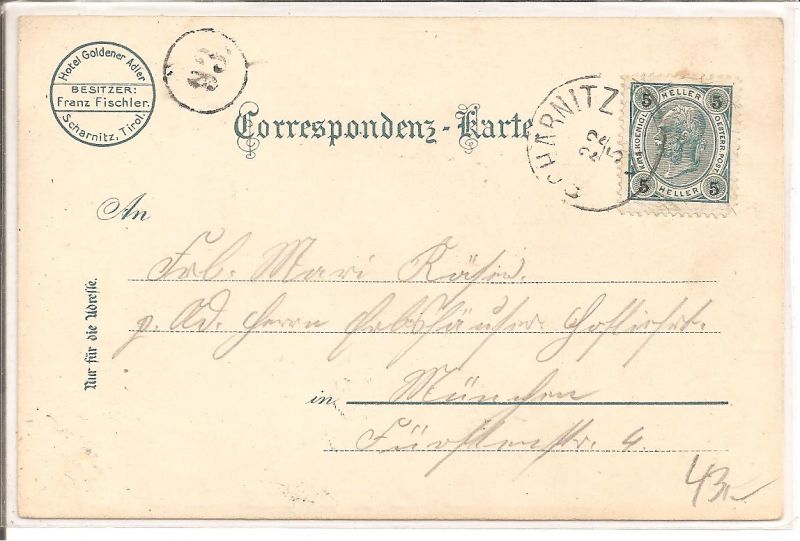 Hotel Goldener Adler
BESITZER:
Franz Fischler.
Scharnitz, Tirol.
93.
Correspondenz-Karte
SCHARNITZ
22
5
5 HELLER 5
KAIS. KOENIGL. OESTERR. POST.
5 HELLER 5
An
Frl. Mari
p. Ad. Herrn Hoflieft.
in München
Fürstenstr. 4.
Nur für die Adresse.
43.-